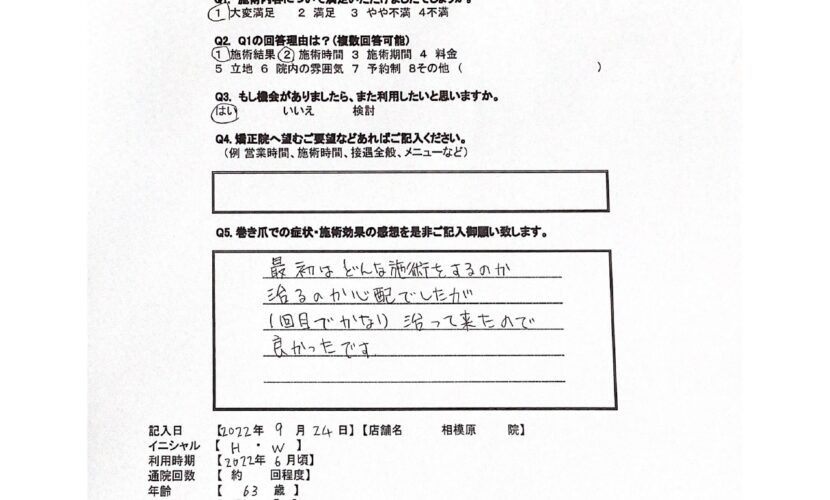 Q1. 施術内容について満足いただけましたでしょうか。
1 大変満足 2 満足 3 やや不満 4不満
Q2. Q1の回答理由は?(複数回答可能)
1 施術結果 2 施術時間 3 施術期間 4 料金
5 立地 6 院内の雰囲気 7 予約制 8その他 ( )
Q3. もし機会がありましたら、また利用したいと思いますか。
はい いいえ 検討
Q4. 矯正院へ望むご要望などあればご記入ください。
(例 営業時間、施術時間、接遇全般、メニューなど)
Q5. 巻き爪での症状・施術効果の感想を是非ご記入御願い致します。
最初はどんな施術をするのか
治るのか心配でしたが
1回目でかなり治って来たので
良かったです
記入日 【2022年 9 月 24 日】【店舗名 相模原 院】
イニシャル 【 H ・ W 】
利用時期 【2022年 6 月頃】
通院回数 【 約 回程度】
年齢 【 63 歳 】